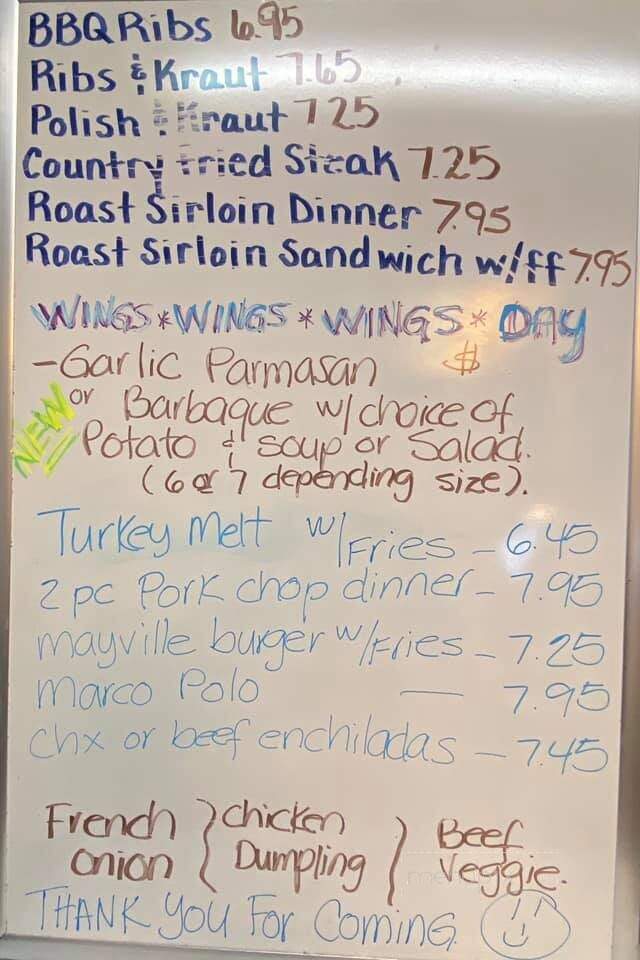 BBQ Ribs 6.95
Ribs & Kraut 7.65
Polish & Kraut 7 25
Country Fried Steak 7.25
Roast Sirloin Dinner 7.95
Roast Sirloin Sandwich w/ff 7.95
WINGS * WINGS * WINGS * DAY
-Garlic Parmasan $
NEW or Barbaque w/choice of
Potato & soup or Salad.
(6 or 7 depending size).
Turkey Melt w/Fries - 6.45
2 pc Pork chop dinner - 7.95
mayville burger w/Fries - 7.25
Marco Polo — 7.95
Chx or beef enchiladas - 7.45
French } chicken } Beef
onion { Dumpling } Veggie.
THANK YOU For Coming